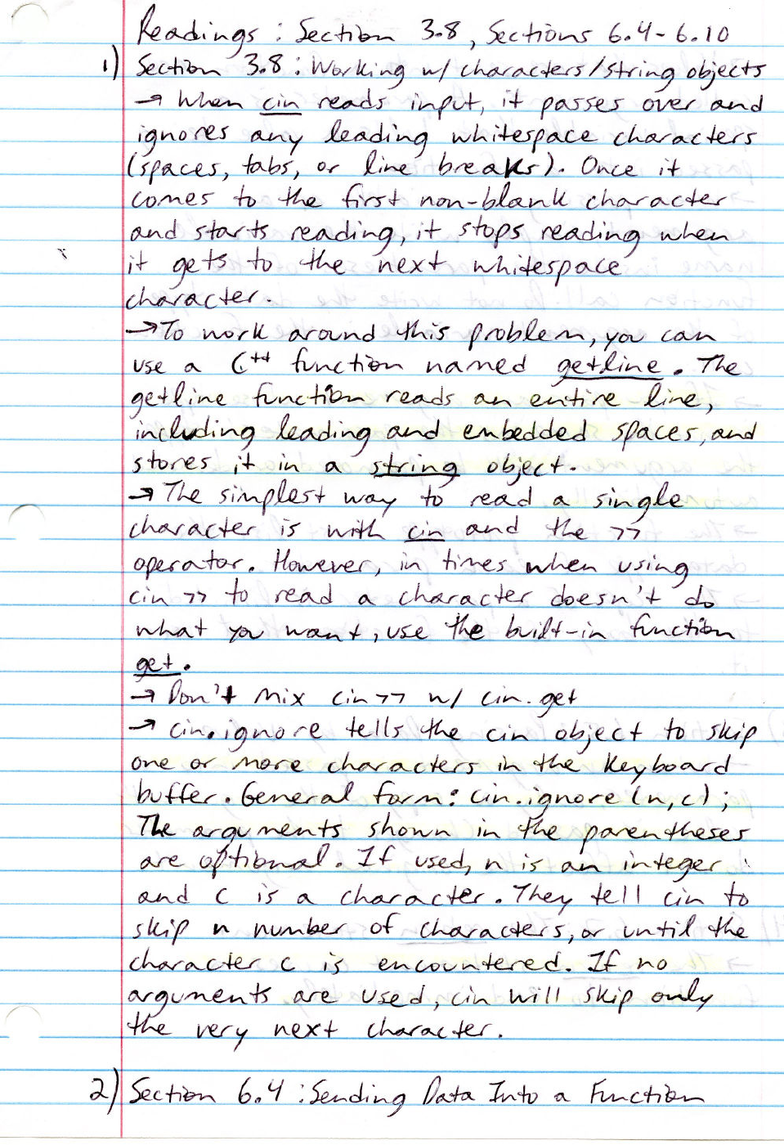 Readings: Section 3.8, Sections 6.4-6.10
1) Section 3.8: Working w/ characters/string objects
→ When cin reads input, it passes over and
ignores any leading whitespace characters
(spaces, tabs, or line breaks). Once it
comes to the first non-blank character
and starts reading, it stops reading when
it gets to the next whitespace
character.
→ To work around this problem, you can
use a C++ function named getline. The
getline function reads an entire line,
including leading and embedded spaces, and
stores it in a string object.
→ The simplest way to read a single
character is with cin and the >>
operator. However, in times when using
cin >> to read a character doesn't do
what you want, use the built-in function
get.
→ Don't mix cin >> w/ cin.get
→ cin.ignore tells the cin object to skip
one or more characters in the keyboard
buffer. General form: cin.ignore(n,c);
The arguments shown in the parentheses
are optional. If used, n is an integer
and c is a character. They tell cin to
skip n number of characters, or until the
character c is encountered. If no
arguments are used, cin will skip only
the very next character.
2) Section 6.4: Sending Data Into a Function